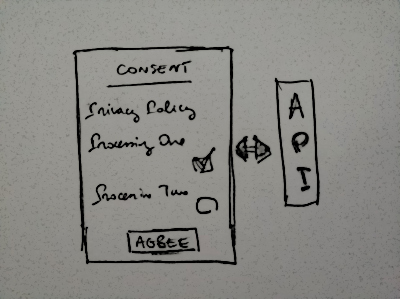 CONSENT
Privacy Policy
Processing One
Processing Two
AGREE
API